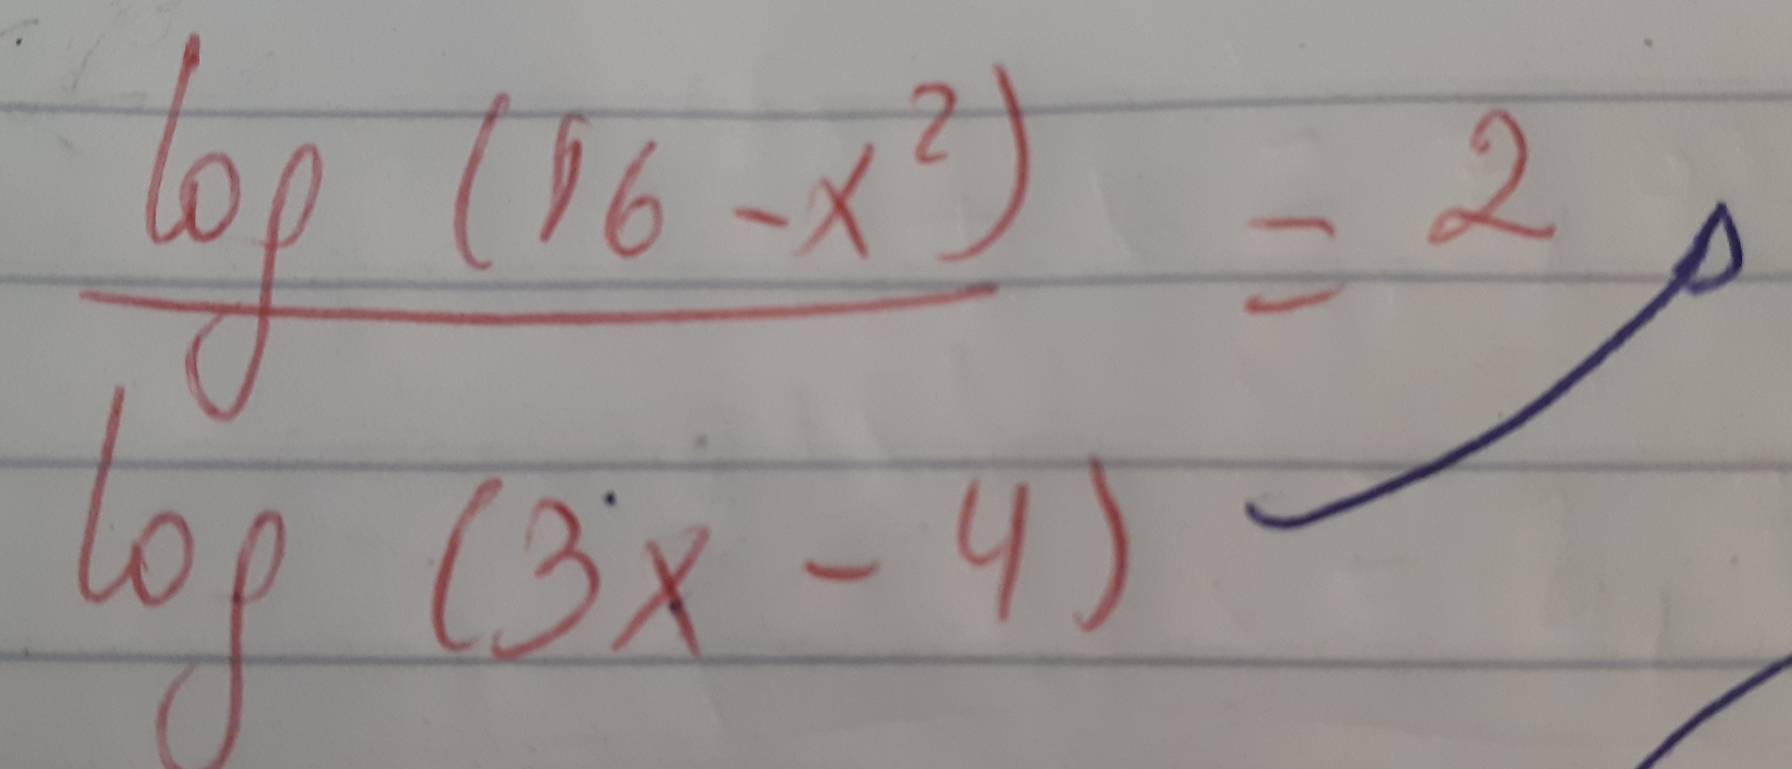 log (16 - x²) = 2
log (3x - 4)